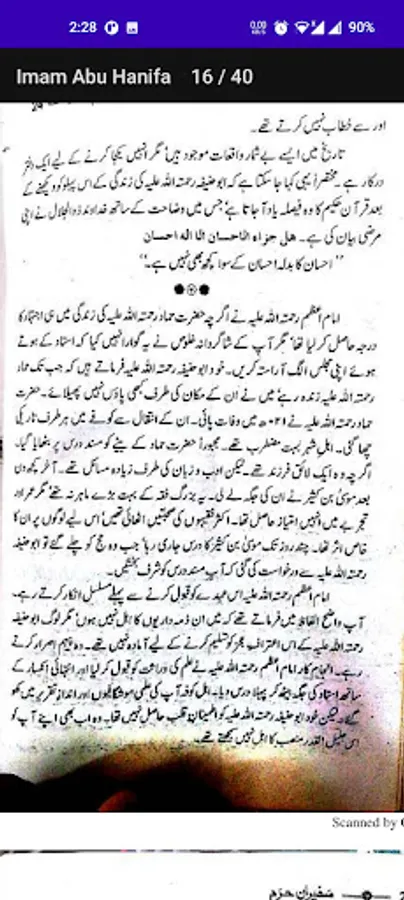 2:28
0.00 KB/S
90%
Imam Abu Hanifa 16 / 40
اور سے خطاب نہیں کرتے تھے۔
تاریخ میں ایسے بے شمار واقعات موجود ہیں مگر انہیں یکجا کرنے کے لیے ایک دفتر
درکار ہے۔ مختصراً یہی کہا جا سکتا ہے کہ ابو حنیفہ رحمتہ اللہ علیہ کی زندگی کے اس پہلو کو دیکھنے کے
بعد قرآن حکیم کا وہ فیصلہ یاد آ جاتا ہے، جس میں وضاحت کے ساتھ خداوند ذوالجلال نے اپنی
مرضی بیان کی ہے۔ ھل جزاء الاحسان الا الاحسان
"احسان کا بدلہ احسان کے سوا کچھ بھی نہیں ہے۔"
امام اعظم رحمتہ اللہ علیہ نے اگرچہ حضرت حماد رحمتہ اللہ علیہ کی زندگی میں ہی اجتہاد کا
درجہ حاصل کر لیا تھا مگر آپ کے شاگردانہ خلوص نے یہ گوارا نہیں کیا کہ استاد کے ہوتے
ہوئے اپنی مجلس الگ آراستہ کریں۔ خود ابو حنیفہ رحمتہ اللہ علیہ فرماتے ہیں کہ جب تک حماد
رحمتہ اللہ علیہ زندہ رہے، میں نے ان کے مکان کی طرف کبھی پاؤں نہیں پھیلائے۔ حضرت
حماد رحمتہ اللہ علیہ نے ۱۲۰ھ میں وفات پائی۔ ان کے انتقال سے کوفے میں ہر طرف تاریکی
چھا گئی۔ اہل شہر بہت مضطرب تھے۔ مجبوراً حضرت حماد کے بیٹے کو مسند درس پر بٹھایا گیا۔
اگرچہ وہ ایک لائق فرزند تھے۔ لیکن ادب و زبان کی طرف زیادہ مائل تھے۔ آخر کچھ دن
بعد موسیٰ بن کثیر نے ان کی جگہ لے لی۔ یہ بزرگ فقہ کے بہت بڑے ماہر نہ تھے، مگر عمر اور
تجربے میں انہیں امتیاز حاصل تھا۔ اکثر فقیہوں کی صحبتیں اٹھائی تھیں اس لیے لوگوں پر ان کا
خاص اثر تھا۔ چند روز تک موسیٰ بن کثیر کا درس جاری رہا، جب وہ حج کو چلے گئے تو ابو حنیفہ
رحمتہ اللہ علیہ سے درخواست کی گئی کہ آپ مسند درس کو شرف بخشیں۔
امام اعظم رحمتہ اللہ علیہ اس عہدے کو قبول کرنے سے پہلے مسلسل انکار کرتے رہے۔
آپ واضح الفاظ میں فرماتے تھے کہ میں ان ذمہ داریوں کا اہل نہیں ہوں، مگر لوگ ابو حنیفہ
رحمتہ اللہ علیہ کے اس اعتراف عجز کو تسلیم کرنے کے لیے آمادہ نہیں تھے۔ وہ پیہم اصرار کرتے
رہے۔ انجام کار امام اعظم رحمتہ اللہ علیہ نے علم کی وراثت کو قبول کر لیا اور انتہائی انکسار کے
ساتھ استاد کی جگہ بیٹھ کر پہلا درس دیا۔ اہل کوفہ آپ کی علمی موشگافیوں اور انداز تقریر میں کھو
گئے۔ لیکن خود ابو حنیفہ رحمتہ اللہ علیہ کو اطمینان قلب حاصل نہیں تھا۔ وہ اب بھی اپنے آپ کو
اس جلیل القدر منصب کا اہل نہیں سمجھتے تھے۔
Scanned by
سفیران حرم